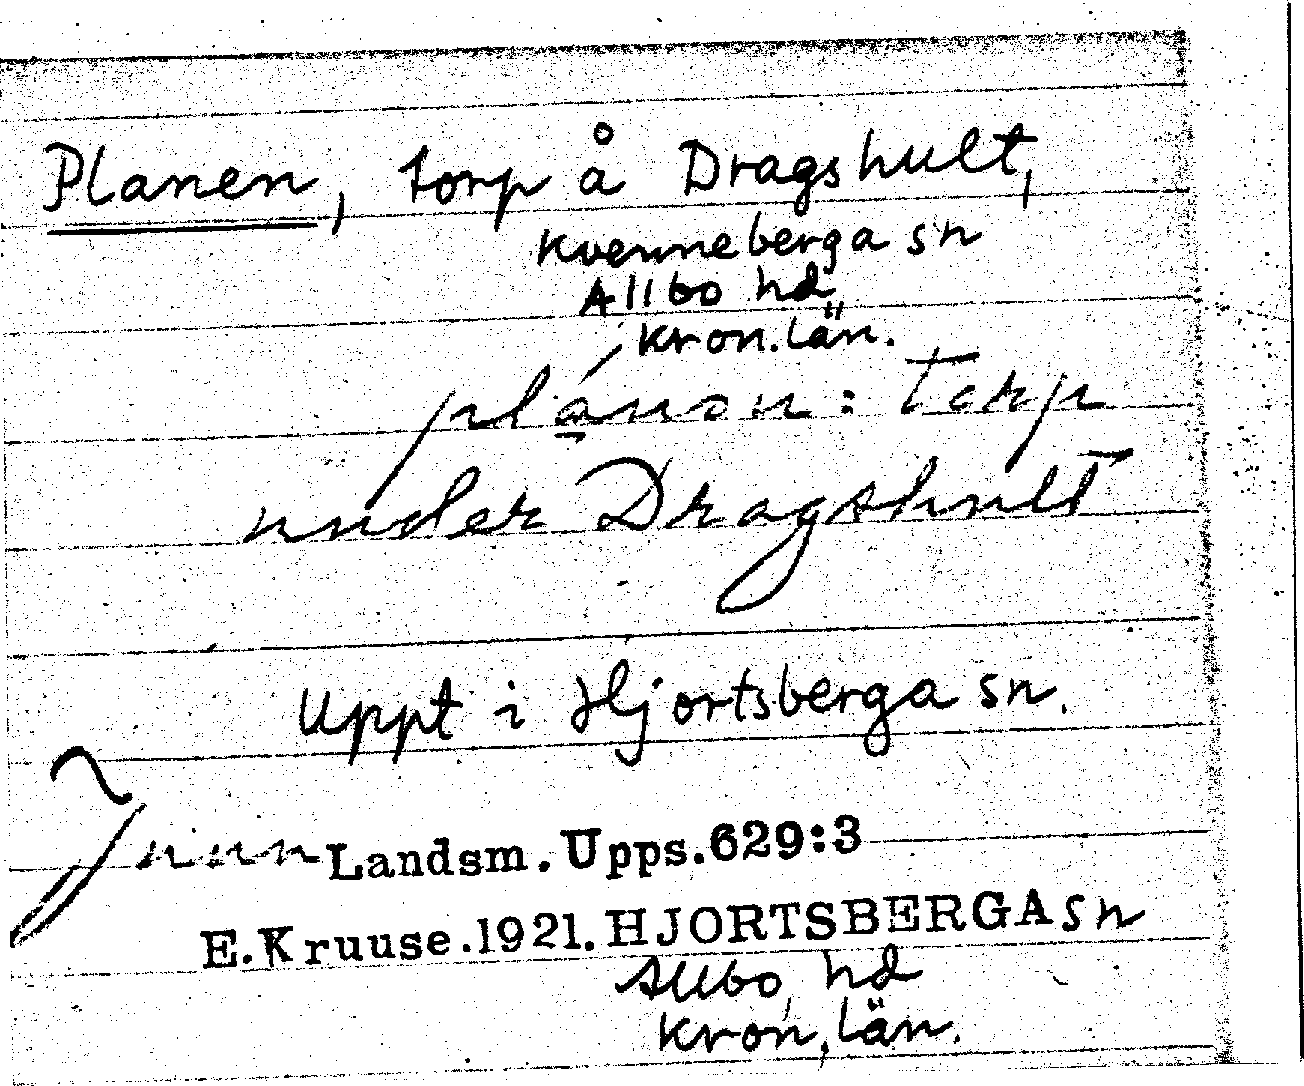 Planen, torp å Dragshult,
Kvenneberga sn
Allbo hd
Kron.län.
plánon: Torp
under Dragshult
Uppt i Hjortsberga sn.
Landsm. Upps.629:3
E.Kruuse.1921. HJORTSBERGA sn
Allbo hd
Kron.län.